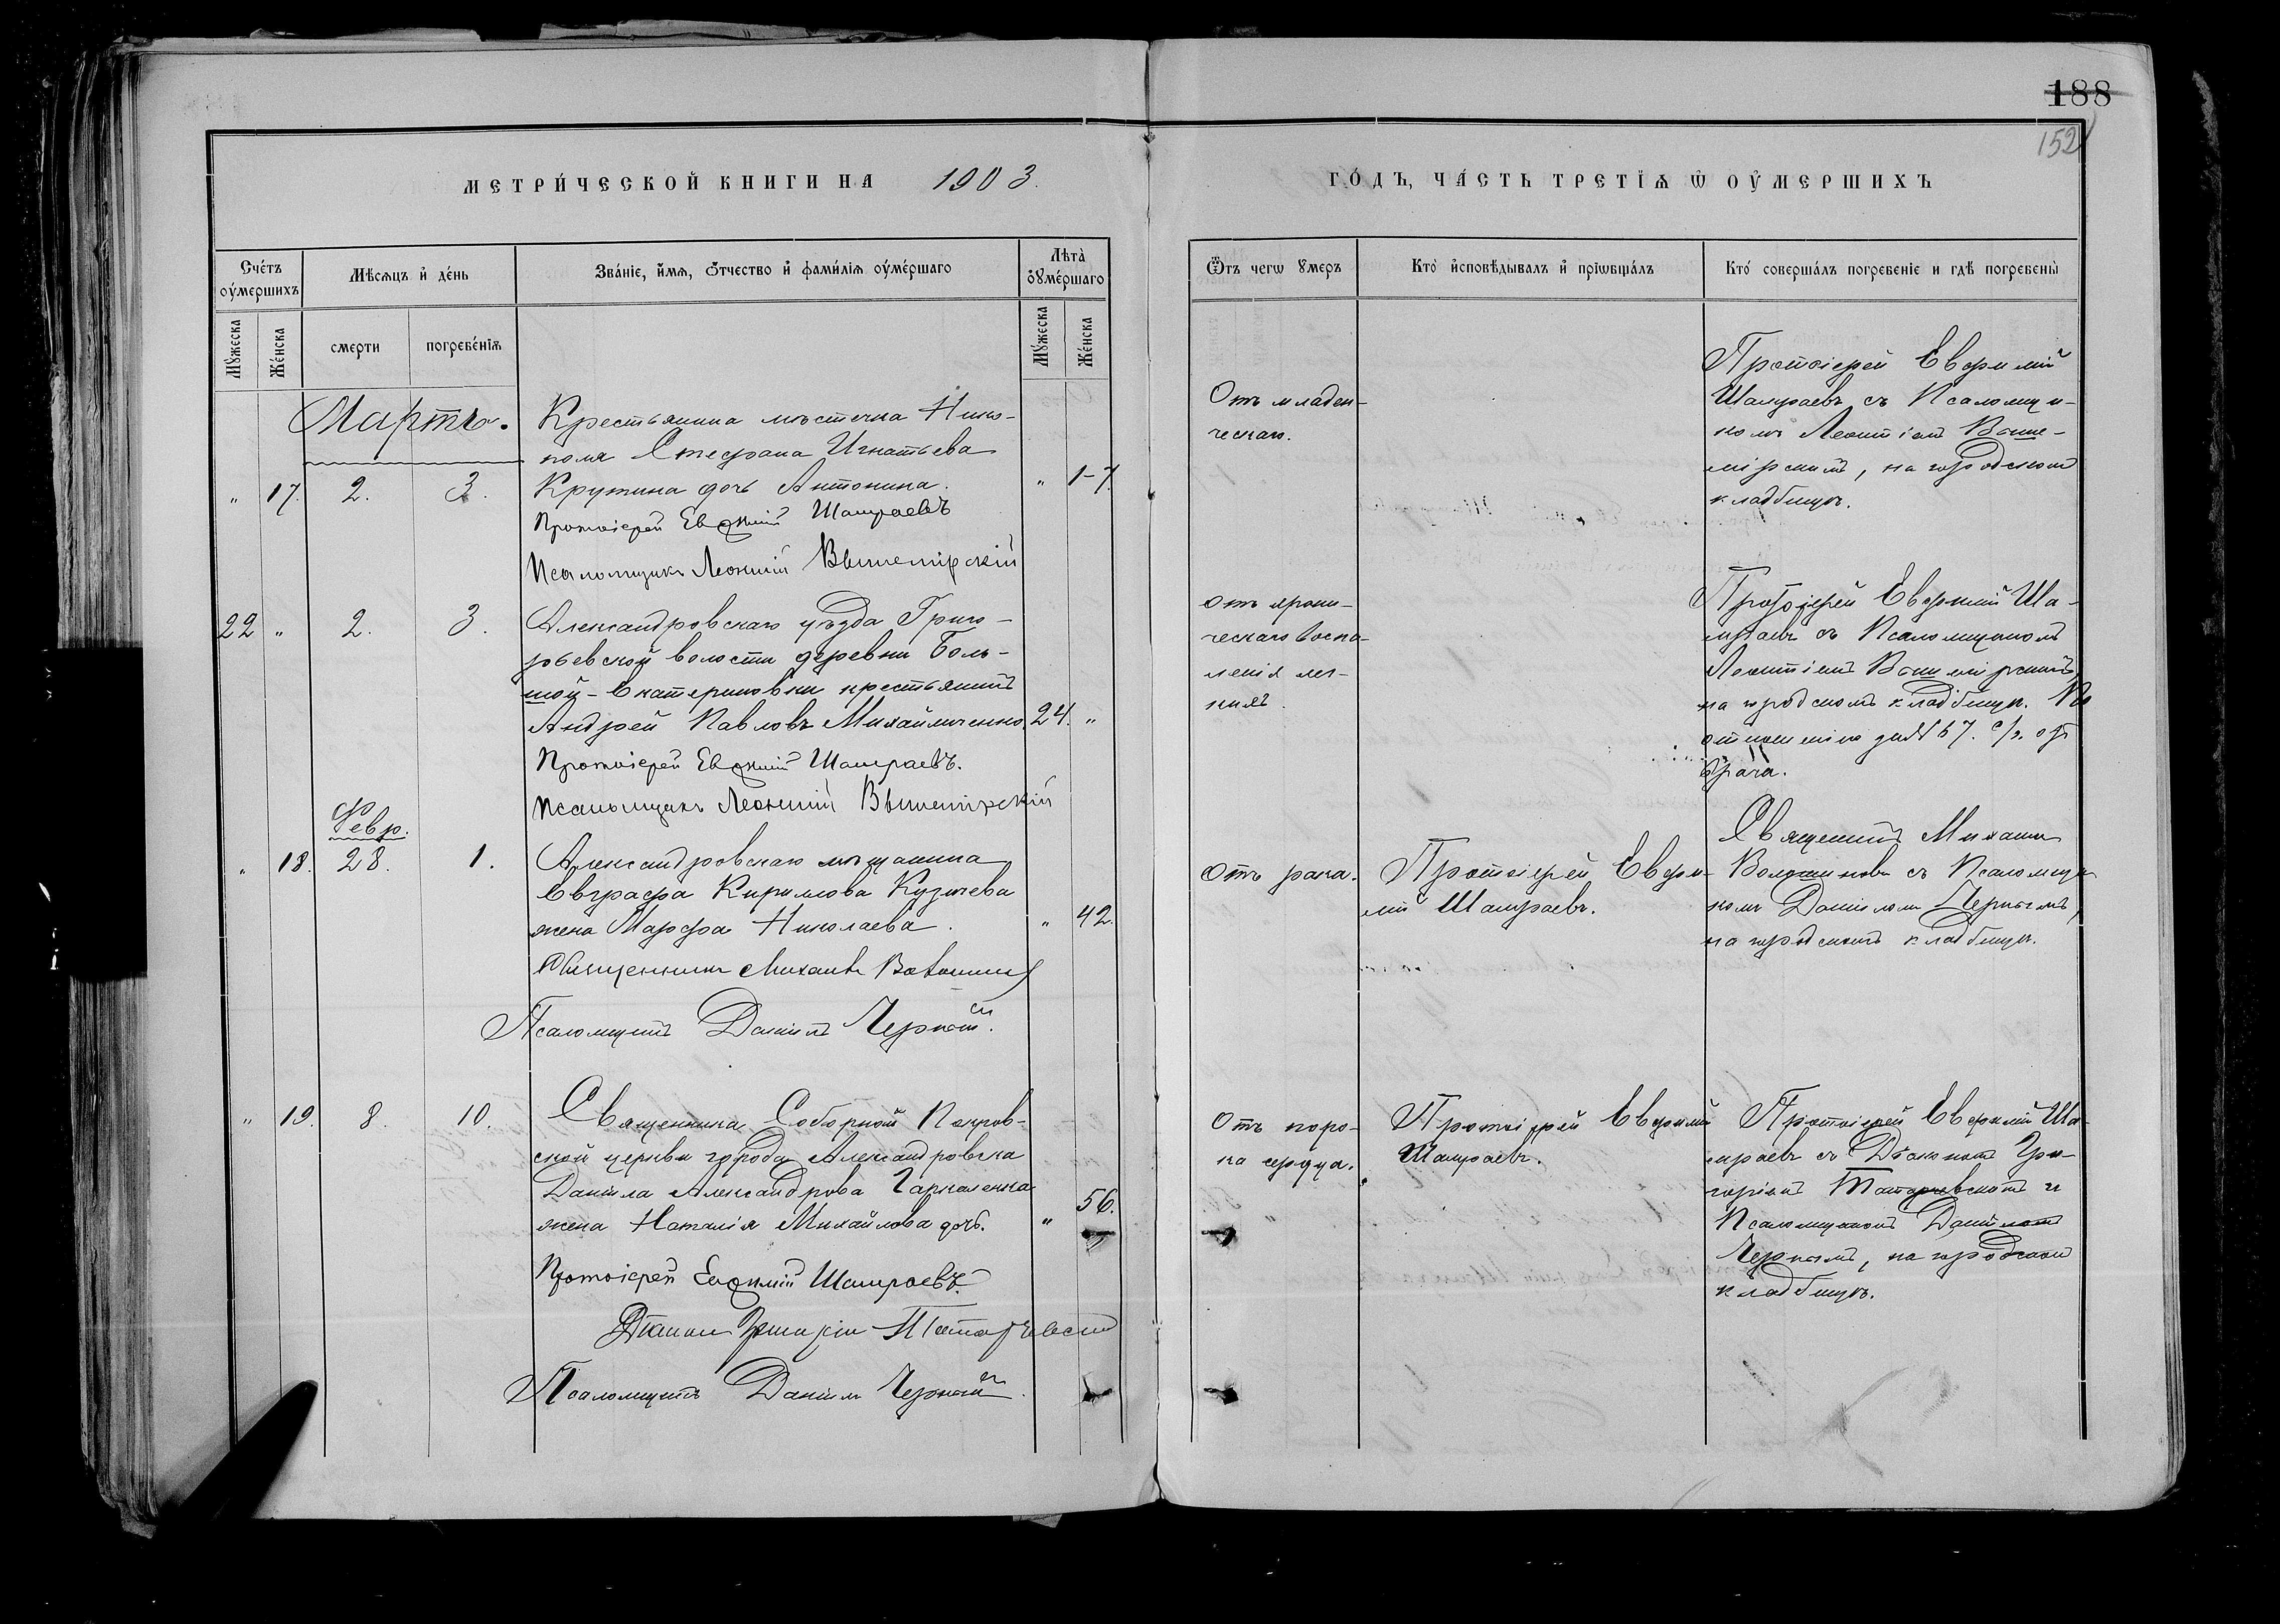 188
152
МЕТРИ́ЧЕСКОЙ КНИГИ НА 1903.
ГО́ДЪ, ЧА́СТЬ ТРЕТІѦ Ѿ ОУ҆́МЕРШИХЪ
Сче́тъ оу҆́мершихъ
Мѣ́сѧцъ и҆ де́нь
Зва́нїе, и҆́мѧ, ѻ҆́тчество и҆ фами́лїѧ оу҆ме́ршаго
Лѣ́та оу҆ме́ршаго
Ѿ чегѡ̀ оу҆́меръ
Кто̀ и҆сповѣ́дывалъ и҆ прїѡбща́лъ
Кто̀ соверша́лъ погребе́нїе и гдѣ̀ погребены̀
Му́жеска
Же́нска
смерти
погребе́нїѧ
Му́жеска
Же́нска
Мартъ.
Крестьянина мѣстечка Нико-
поля Стефана Игнатьева
" 17. 2. 3. Крутина дочь Антонина. " 1-7.
Протоіерей Евѳимій Шамраевъ
Псаломщикъ Леонтій Вышемірскій
Отъ младен-
ческаго.
Протоіерей Евфимій
Шамраевъ съ Псаломщи-
комъ Леонтіемъ Выше-
мірскимъ, на городскомъ
кладбищѣ.
22 " 2. 3. Александровскаго уѣзда Григо-
рьевской волости деревни Боль-
шой-Екатериновки крестьянинъ
Андрей Павловъ Михайличенко. 24. "
Протоіерей Евѳимій Шамраевъ.
Псаломщикъ Леонтій Вышемірскій
Отъ хрони-
ческаго воспа-
ленія лег-
кихъ.
Протоіерей Евфимій Ша-
мраевъ съ Псаломщикомъ
Леонтіемъ Вышемірскимъ,
на городскомъ кладбищѣ. По
отношенію за № 67. с/г. отъ
врача.
Февр.
" 18. 28. 1. Александровскаго мѣщанина
Евграфа Кирилова Кузичева
жена Марфа Николаева. " 42.
Священникъ Михаилъ Волошинъ
Псаломщикъ Даніилъ Черный.
Отъ рака.
Протоіерей Евфи-
мій Шамраевъ.
Священникъ Михаилъ
Волошиновъ съ Псаломщи-
комъ Даніиломъ Чернымъ,
на городскомъ кладбищѣ.
" 19. 8. 10. Священника Соборной Покров-
ской церкви города Александровска
Даніила Александрова Гаркаленка
жена Наталія Михайлова дочь. " 56.
Протоіерей Евѳимій Шамраевъ.
Діаконъ Григорій
Псаломщикъ Даніилъ Черный.
Отъ поро-
ка сердца.
Протоіерей Евфимій
Шамраевъ.
Протоіерей Евфимій Ша-
мраевъ съ Діакономъ Гри-
горіемъ и
Псаломщикомъ Даніиломъ
Чернымъ, на городскомъ
кладбищѣ.